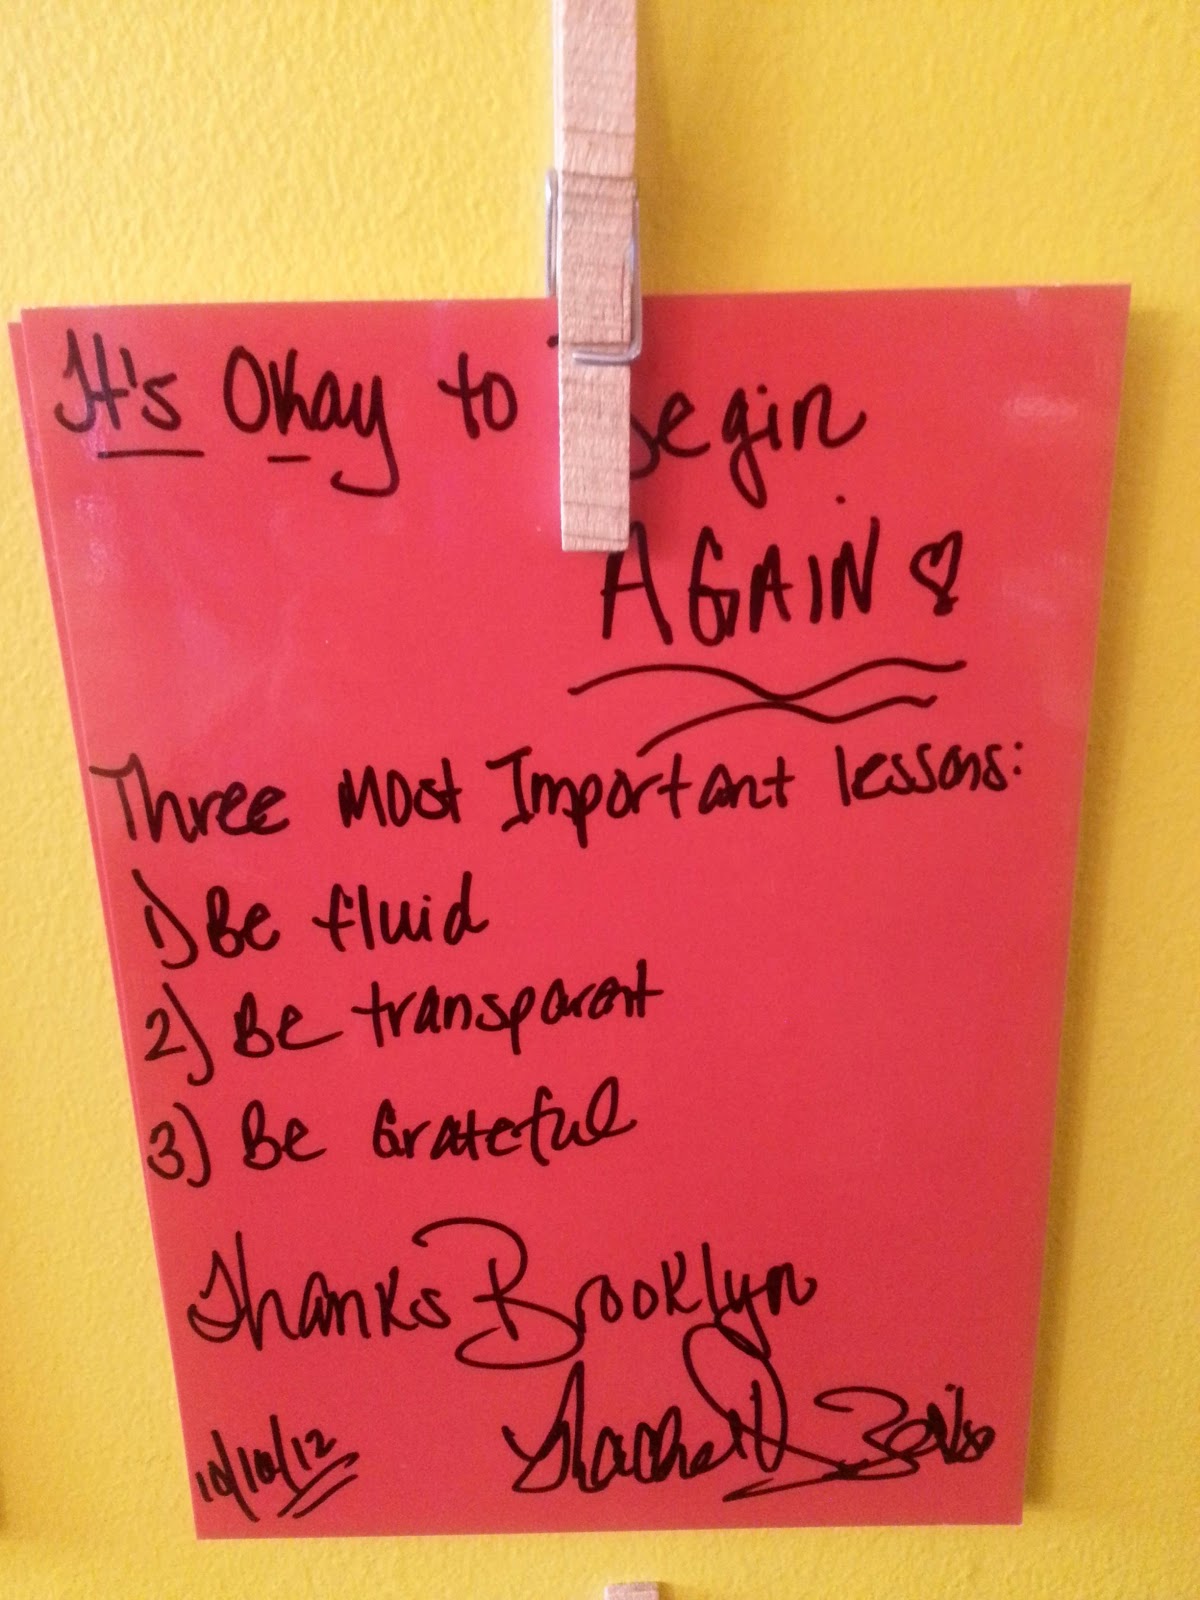 It's Okay to Begin
AGAIN
Three Most Important lessons:
1) Be fluid
2) Be transparent
3) Be Grateful
Thanks Brooklyn
10/10/12